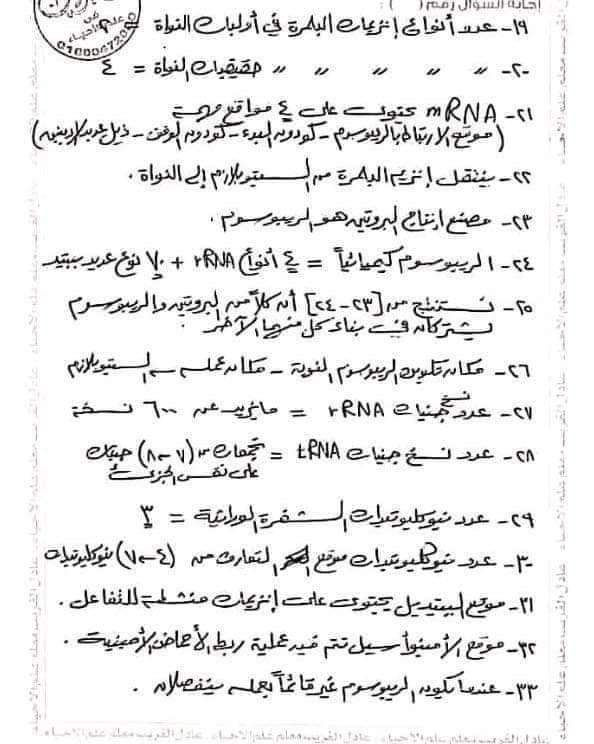 إجابة السؤال رقم ( ) :
01000472
١٩- عدد أنواع إنزيمات البلمرة في أوليات النواة = ١
٢٠- " " " " " حقيقيات النواة = ٤
٢١- mRNA يحتوى على ٤ مواقع مهمة
(موقع الارتباط بالريبوسوم - كودون البدء - كودون الوقف - ذيل عديد الأدينين)
٢٢- ينتقل إنزيم البلمرة من السيتوبلازم إلى النواة.
٢٣- مصنع إنتاج البروتين هو الريبوسوم.
٢٤- الريبوسوم كيميائياً = ٤ أنواع rRNA + ٧٠ نوع عديد ببتيد
٢٥- نستنتج من [٢٣-٢٤] أن كلاً من البروتين والريبوسوم
يشتركان في بناء كل منهما الآخر.
٢٦- مكان تكوين الريبوسوم النوية - مكان عمله السيتوبلازم
٢٧- عدد نسخ جينات rRNA = ما يزيد عن ٦٠٠ نسخة
٢٨- عدد نسخ جينات tRNA = تجمعات من (٧-٨) جينات
على نفس الجزئ
٢٩- عدد نيوكليوتيدات الشفرة الوراثية = ٣
٣٠- عدد نيوكليوتيدات موقع التعارف من (٤-٧) نيوكليوتيدات
٣١- موقع الببتيديل يحتوى على إنزيمات منشطة للتفاعل.
٣٢- موقع الأمينو أسيل تتم فيه عملية ربط الأحماض الأمينية.
٣٣- عندما يكون الريبوسوم غير قائماً بعمله ينفصلان.
عادل الغريب معلم علم الأحياء